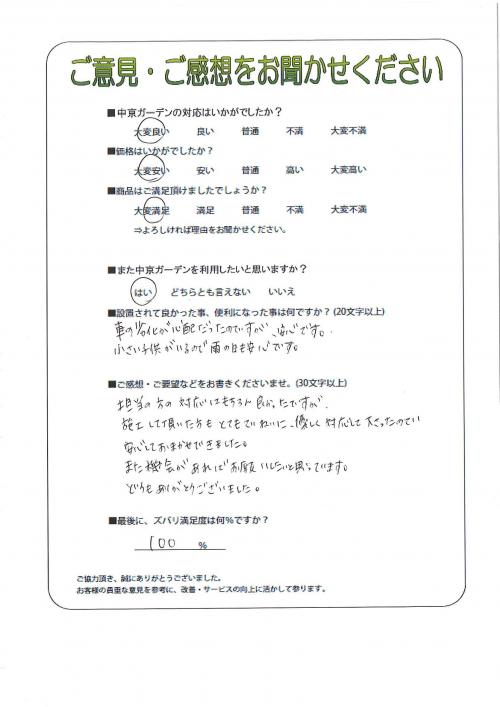 ご意見・ご感想をお聞かせください
■中京ガーデンの対応はいかがでしたか？
大変良い 良い 普通 不満 大変不満
■価格はいかがでしたか？
大変安い 安い 普通 高い 大変高い
■商品はご満足頂けましたでしょうか？
大変満足 満足 普通 不満 大変不満
⇒よろしければ理由をお聞かせください。
■また中京ガーデンを利用したいと思いますか？
はい どちらとも言えない いいえ
■設置されて良かった事、便利になった事は何ですか？(20文字以上)
車の劣化が心配だったのですが、安心です。
小さい子供がいるので雨の日も安心です。
■ご感想・ご要望などをお書きくださいませ。(30文字以上)
担当の方の対応はもちろん良かったですが、
施工して頂いた方もとてもていねいに、優しく対応して下さったので
安心しておまかせできました。
また機会があればお願いしたいと思っています。
どうもありがとうございました。
■最後に、ズバリ満足度は何%ですか？
100 %
ご協力頂き、誠にありがとうございました。
お客様の貴重な意見を参考に、改善・サービスの向上に活かして参ります。